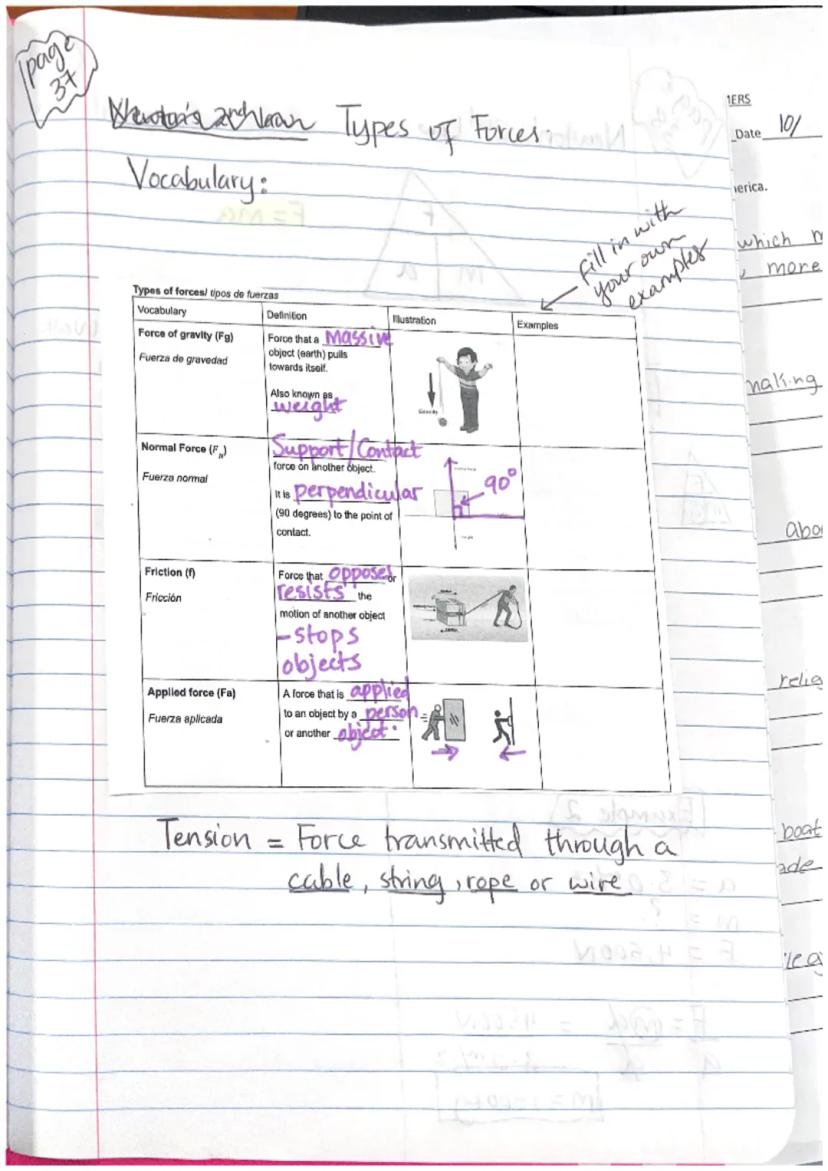 page
37
Newton's 2nd Law Types of Forces
Vocabulary:
fill in with
your own
examples
Types of forces/ tipos de fuerzas
Vocabulary
Definition
Illustration
Examples
Force of gravity (Fg)
Fuerza de gravedad
Force that a Massive
object (earth) pulls
towards itself.
Also known as
weight
Gravity
Normal Force (FN)
Fuerza normal
Support/Contact
force on another object.
It is perpendicular
(90 degrees) to the point of
contact.
90°
Friction (f)
Fricción
Force that opposes or
resists the
motion of another object
-stops
objects
Applied force (Fa)
Fuerza aplicada
A force that is applied
to an object by a person
or another object.
Tension = Force transmitted through a
cable, string, rope or wire
Date 10/
erica.
which
more
making
boat